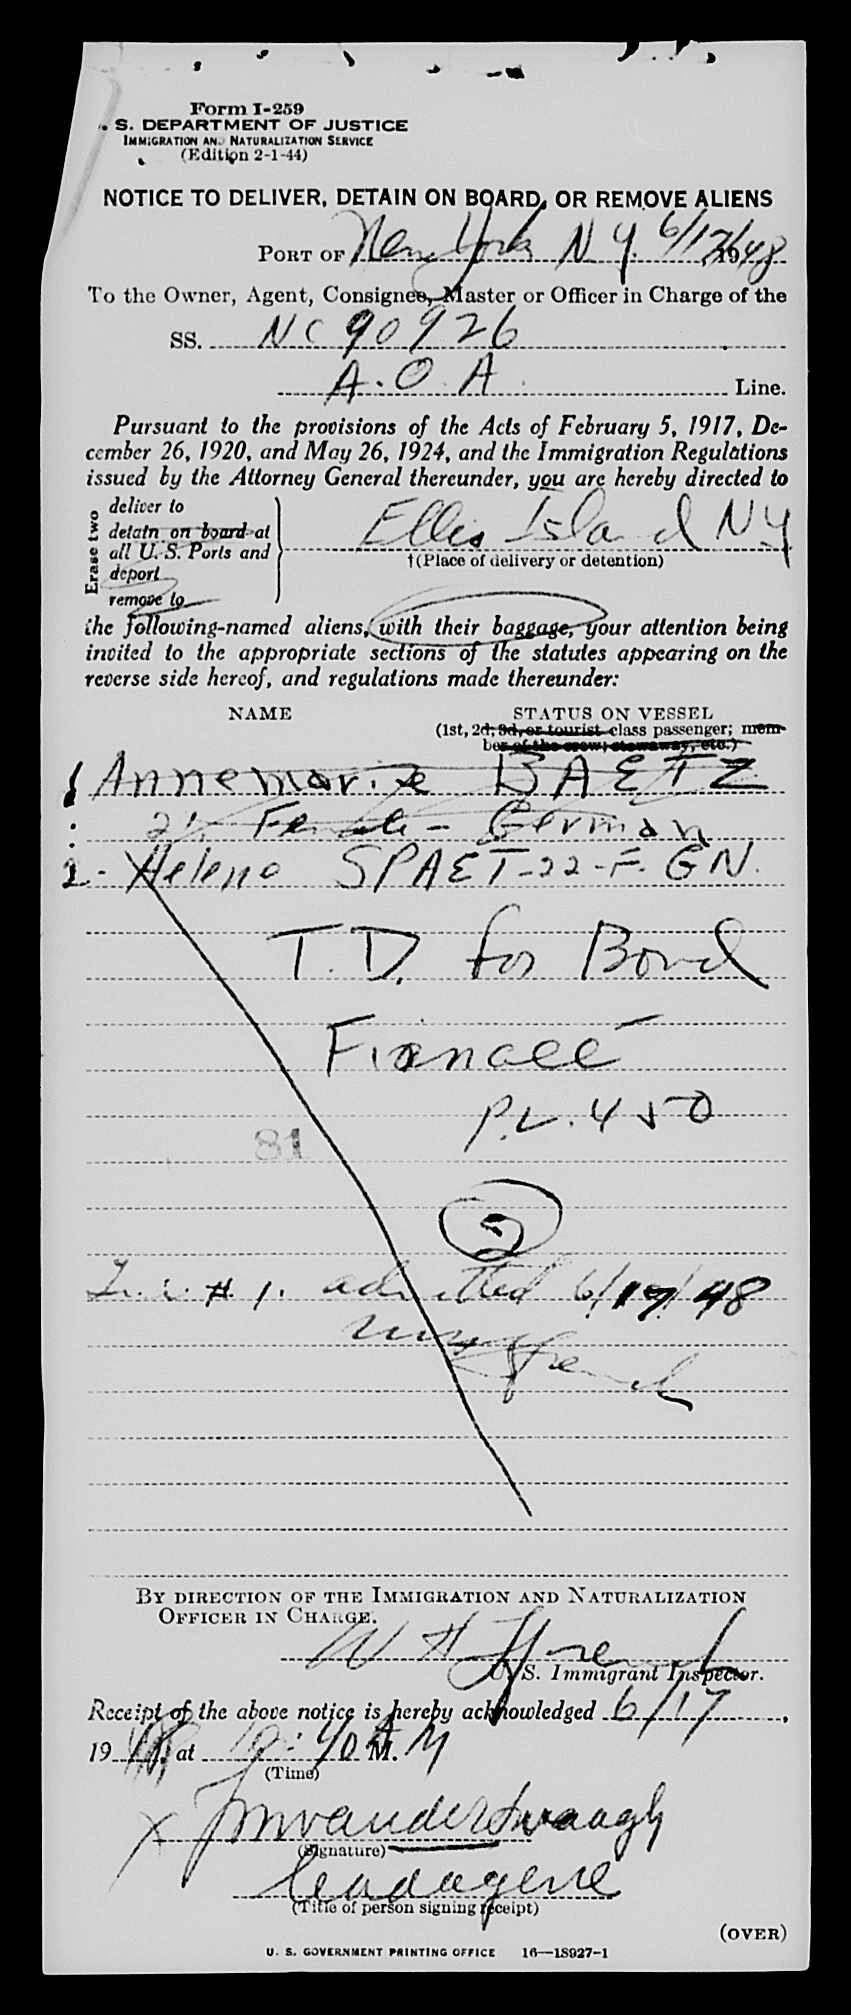 Form I-259
. S. DEPARTMENT OF JUSTICE
IMMIGRATION AND NATURALIZATION SERVICE
(Edition 2-1-44)
NOTICE TO DELIVER, DETAIN ON BOARD, OR REMOVE ALIENS
PORT OF New York N Y. 6/17/1948
To the Owner, Agent, Consignee, Master or Officer in Charge of the
SS. NC 90926
A. O. A. Line.
Pursuant to the provisions of the Acts of February 5, 1917, De-
cember 26, 1920, and May 26, 1924, and the Immigration Regulations
issued by the Attorney General thereunder, you are hereby directed to
Erase two
deliver to
detain on board at
all U. S. Ports and
deport
remove to
Ellis Island NY
†(Place of delivery or detention)
the following-named aliens, with their baggage, your attention being
invited to the appropriate sections of the statutes appearing on the
reverse side hereof, and regulations made thereunder:
NAME STATUS ON VESSEL
(1st, 2d, 3d, or tourist class passenger; mem-
ber of the crew; stowaway, etc.)
1 Annemarie BAETZ
Female - German
2- Helene SPAET-22-F. GN.
T.D. for Bond
Fianceé
P.L. 450
81
2
# 1. admitted 6/17/48
French
BY DIRECTION OF THE IMMIGRATION AND NATURALIZATION
OFFICER IN CHARGE.
W H French
U. S. Immigrant Inspector.
Receipt of the above notice is hereby acknowledged 6/17,
1948, at 10:40 A M.
(Time)
X
(Signature)
(Title of person signing receipt)
(OVER)
U. S. GOVERNMENT PRINTING OFFICE 16—18927-1